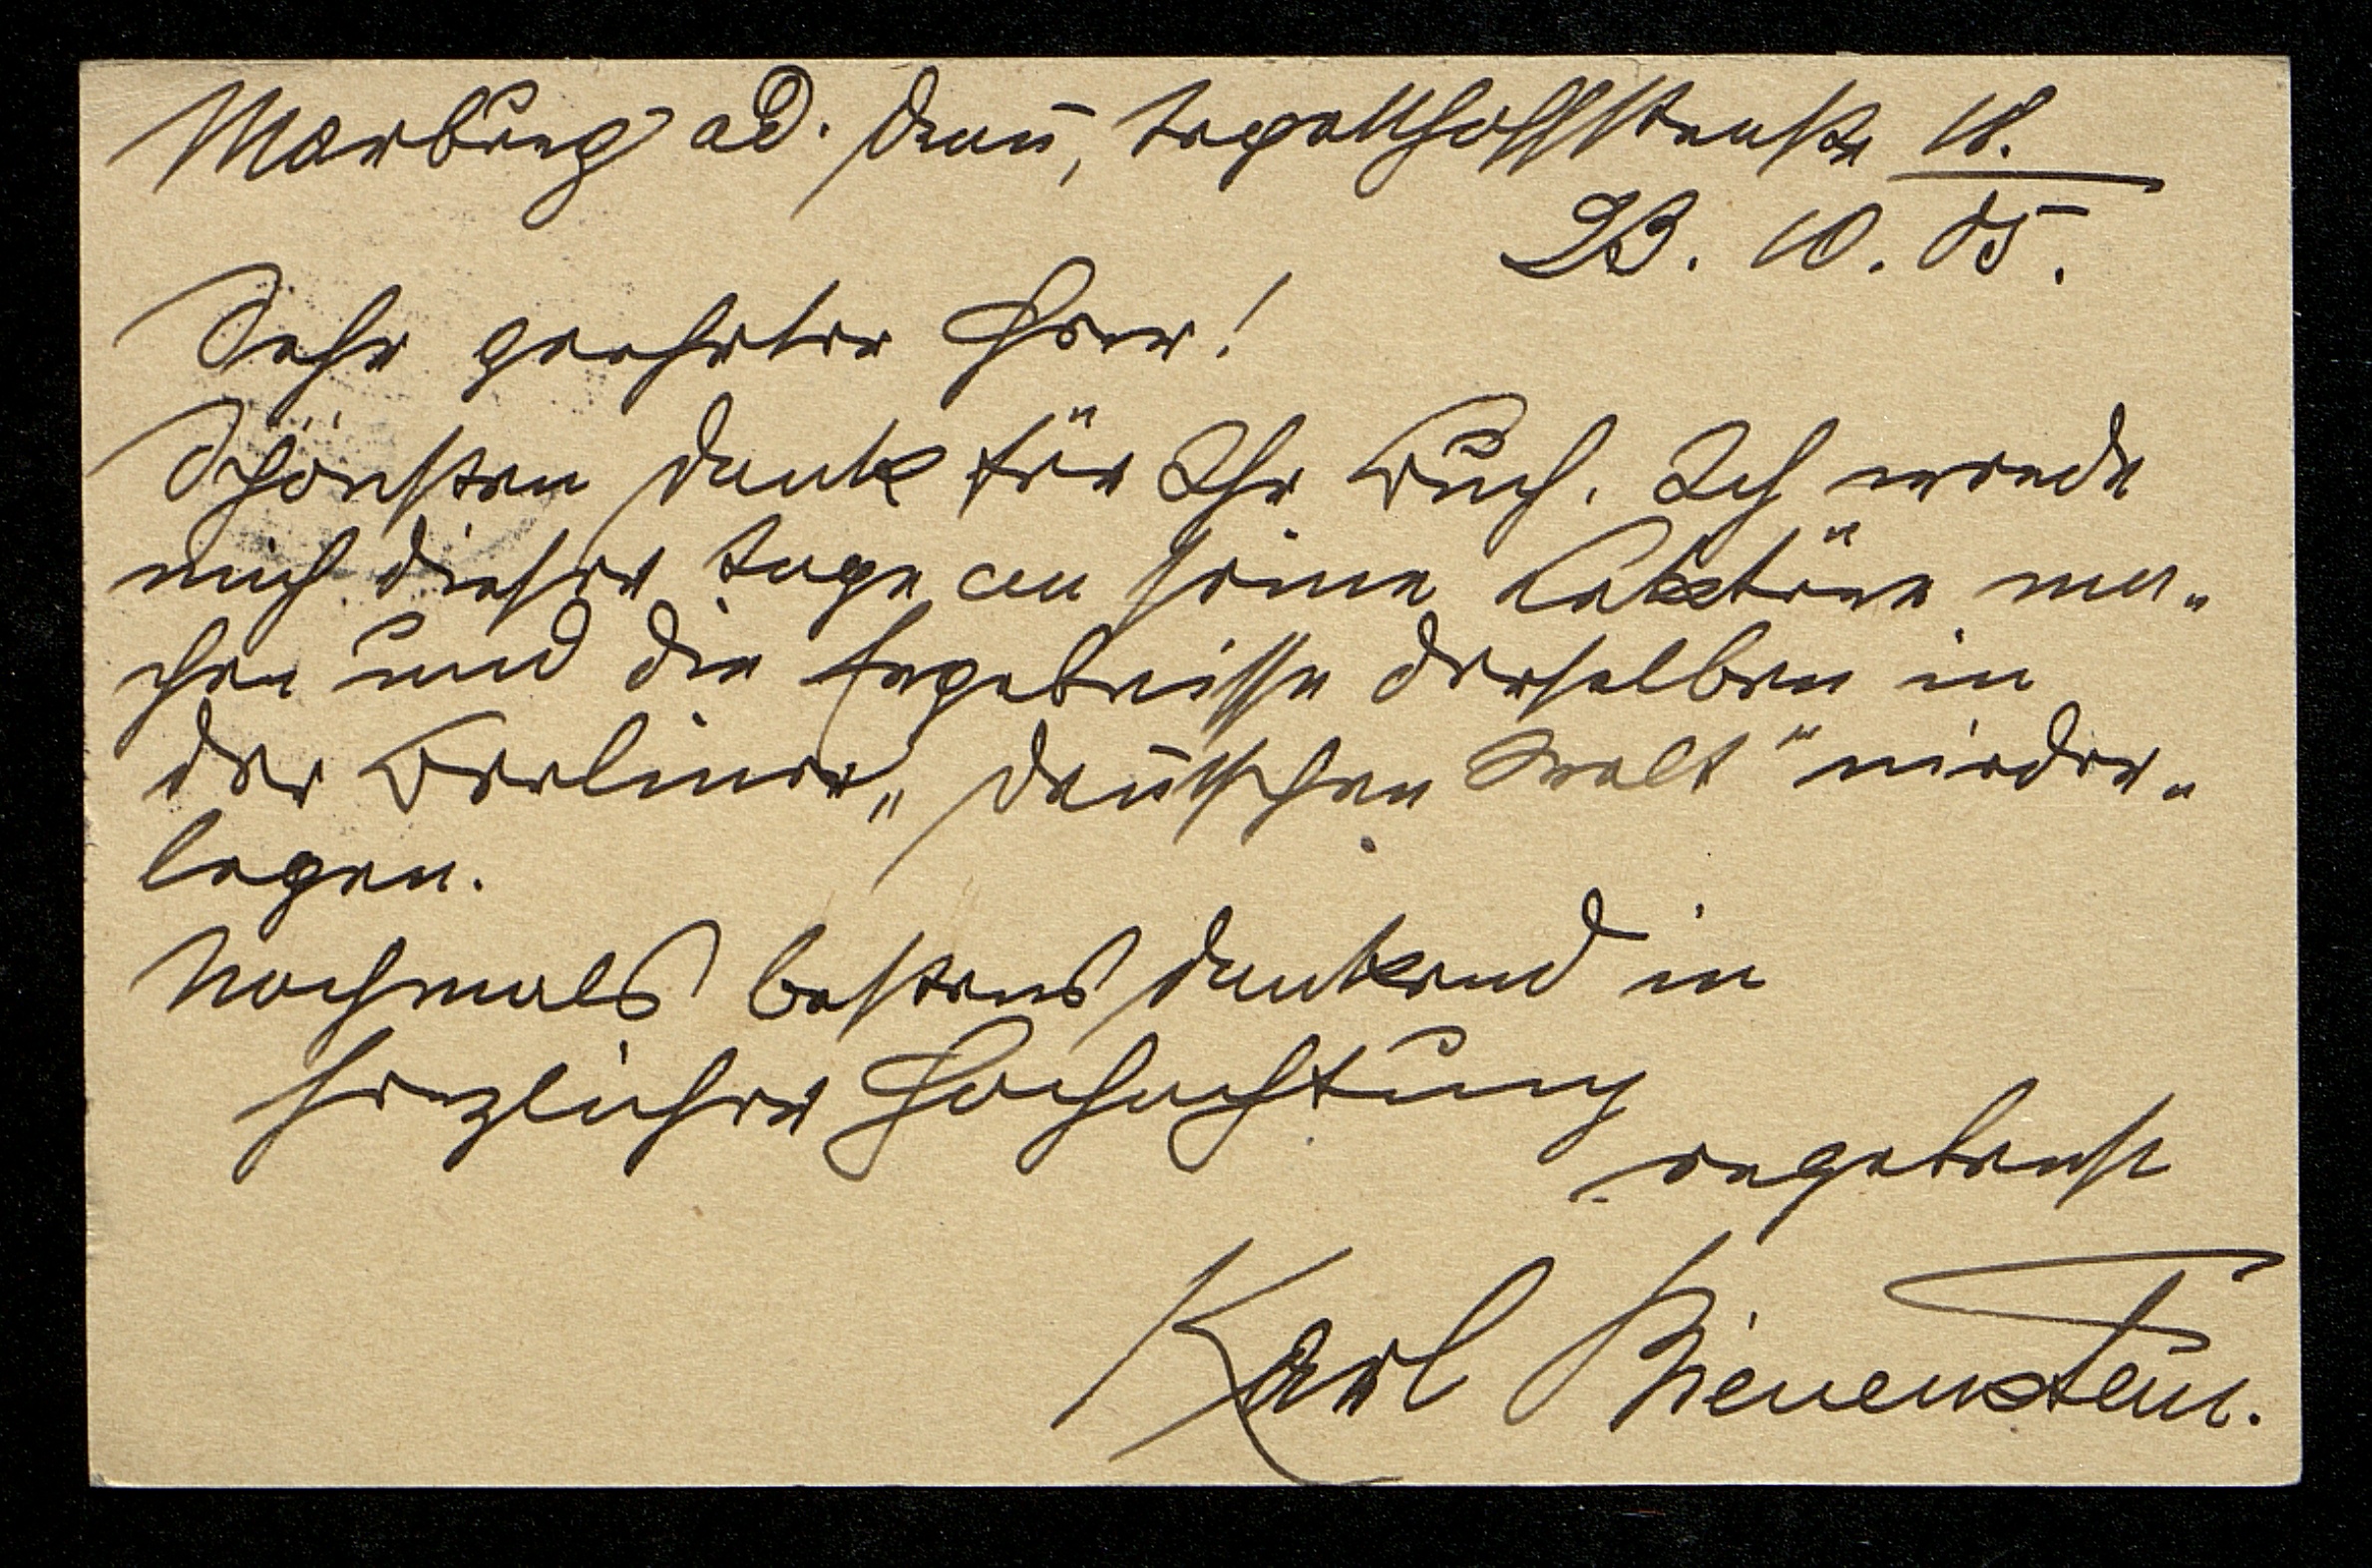 Marburg a/D. Drau, Tegetthoffstraße 18.
23. 10. 05.
Sehr geehrter Herr!
Schönsten Dank für Ihr Buch. Ich werde
mich dieser Tage an seine Lektüre ma-
chen und die Ergebnisse derselben in
der Berliner „Deutschen Welt" nieder-
legen.
Nochmals bestens dankend in
herzlicher Hochachtung
ergebenst
Karl Bienenstein.